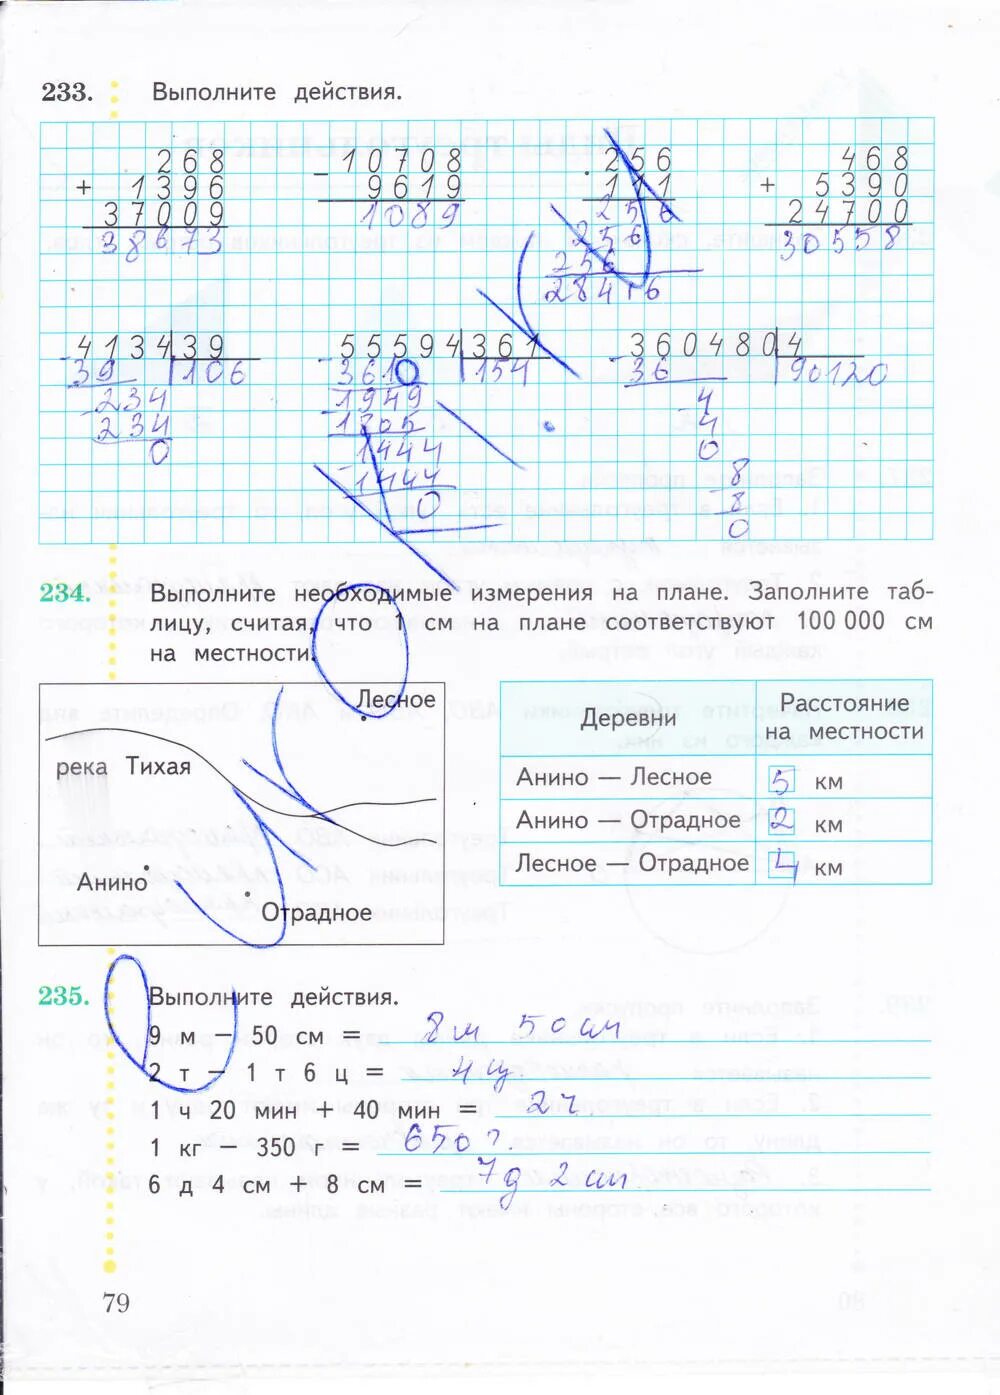 233. Выполните действия.
268
+ 1396
37009
38673
- 10708
9619
1089
· 256
111
256
256
256
28416
468
+ 5390
24700
30558
- 4134 39
39 106
- 234
234
0
- 55594 361
3610 154
- 1949
1805
- 1444
1444
0
- 360480 4
36 90120
- 4
4
0
- 8
8
0
234. Выполните необходимые измерения на плане. Заполните таб-
лицу, считая, что 1 см на плане соответствуют 100 000 см
на местности.
Лесное
река Тихая
Анино
Отрадное
Деревни Расстояние на местности
Анино — Лесное 5 км
Анино — Отрадное 2 км
Лесное — Отрадное 4 км
235. Выполните действия.
9 м − 50 см = 8 м 50 см
2 т − 1 т 6 ц = 4 ц.
1 ч 20 мин + 40 мин = 2 ч
1 кг − 350 г = 650 г.
6 д 4 см + 8 см = 7 д 2 см
79